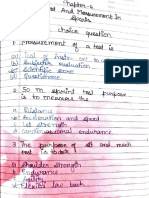 Chapter-6
And Measurement In
Sports
choice question
1. Measurement of a test is
Tool of
b) Subjective evaluation
c) Scientific score
d) Questionare
2. 50 m sprint test purpose
is to measure the
a) Distance
b) Acceleration and speed
c) Let strength
d) Cardiovascular endurance
3. The purpose of sit and reach
test is to
a) Shoulder strength
b) Endurance
c) Agility
d) Flexion low back